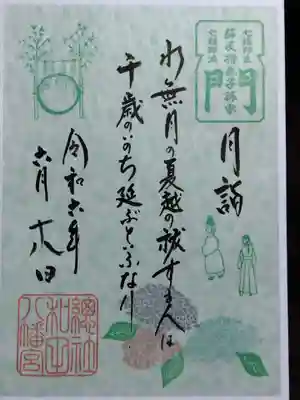 蘇民将来子孫家
門
月詣
水無月の夏越の祓する人は
千歳のいのち延ぶといふなり
令和六年
六月末日
總社
和田
八幡宮